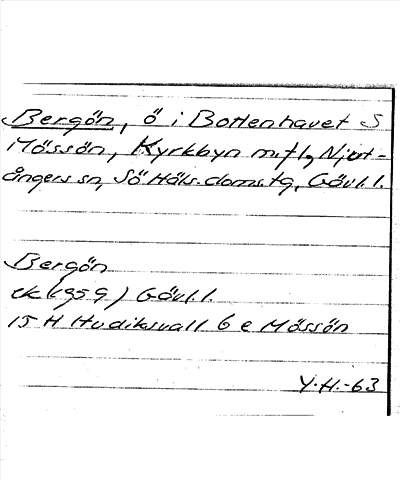 Bergön, ö i Bottenhavet S
Mössön, Kyrkbyn m.fl., Njut-
ångers sn, Sö Häls. doms.tg, Gävl.l.
Bergön
ek (1959) Gävl.l.
15 H Hudiksvall 6 e Mössön
Y.H.-63